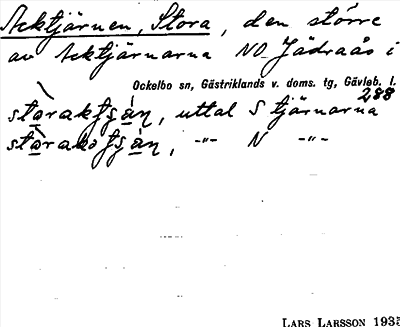 Acktjärnen, Stora, den större
av Acktjärnarna NO Jädraås i
Ockelbo sn, Gästriklands v. doms. tg, Gävleb. l.
288
storaktʃän, uttal S tjärnarna
storakətʃän, -"- N -"-
LARS LARSSON 1935